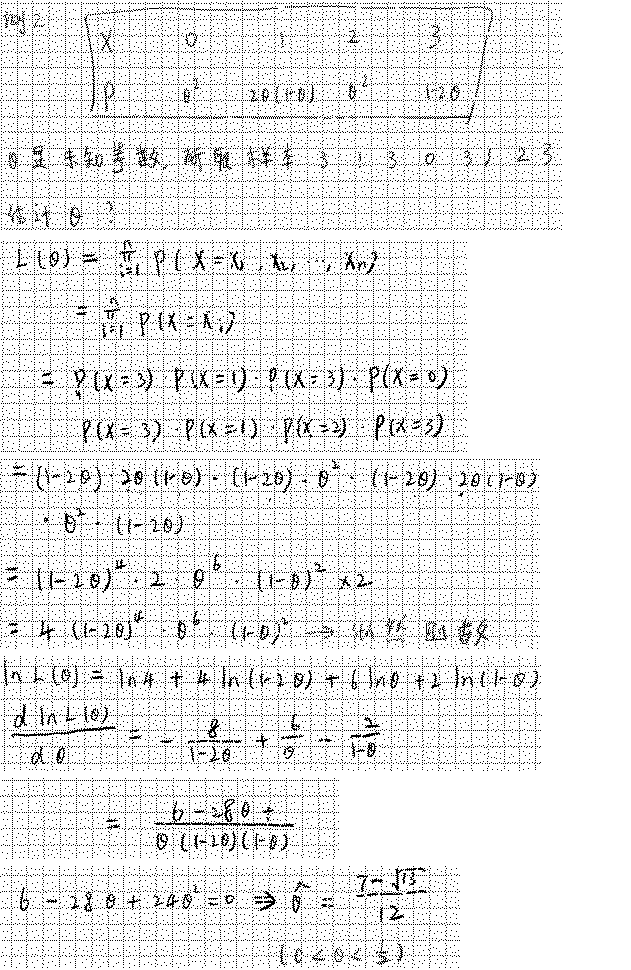 X 0 1 2 3
P θ² 2θ(1-θ) θ² 1-2θ
θ是未知参数, 3 1 3 0 3 1 2 3
估计 θ ?
L(θ) = ∏ᵢ₌₁ⁿ P(X = x₁, x₂, ..., xₙ)
= ∏ᵢ₌₁ⁿ P(X = xᵢ)
= P(X=3) · P(X=1) · P(X=3) · P(X=0)
P(X=3) · P(X=1) · P(X=2) · P(X=3)
= (1-2θ) · 2θ(1-θ) · (1-2θ) · θ² · (1-2θ) · 2θ(1-θ)
· θ² · (1-2θ)
= (1-2θ)⁴ · 2 · θ⁶ · (1-θ)² × 2
= 4 (1-2θ)⁴ · θ⁶ · (1-θ)² → 似然函数
ln L(θ) = ln4 + 4 ln(1-2θ) + 6 lnθ + 2 ln(1-θ)
d ln L(θ) / d θ = - 8/(1-2θ) + 6/θ - 2/(1-θ)
= (6 - 28θ +) / (θ(1-2θ)(1-θ))
6 - 28θ + 24θ² = 0 ⇒ θ̂ = (7-√13)/12